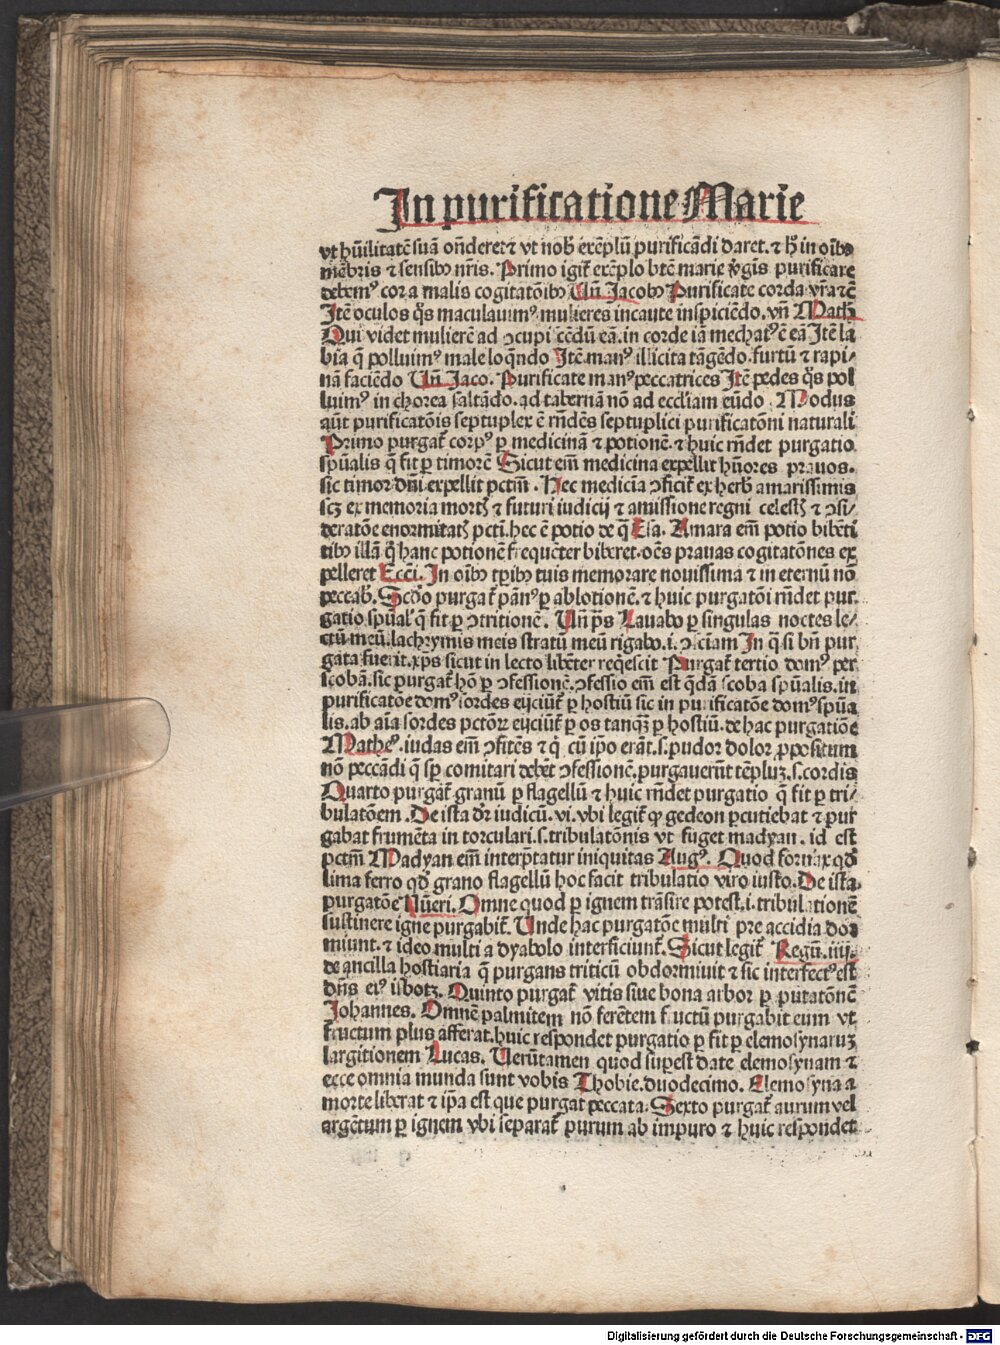 In purificatione Marie
vt hũilitatẽ suã oñderet ⁊ vt nob̃ exẽplũ purificãdi daret. ⁊ h̃ in oĩbꝰ
mẽbris ⁊ sensibꝰ nr̃is. Primo igit̃ exẽplo btẽ marie v̓gĩs purificare
debemꝰ cor a malis cogitatõibꝰ Vñ Jacobꝰ Purificate corda vr̃a ⁊c̃
Jtẽ oculos q̃s maculauimꝰ mulieres incaute inspiciẽdo. vñ Math̃
Qui videt mulierẽ ad ɔcupiscẽdũ eã. in corde iã mechatꝰ ẽ eã Jtẽ la
bia q̃ polluimꝰ male loq̃ndo Jtẽ manꝰ illicita tãgẽdo. furtũ ⁊ rapi⸗
nã faciẽdo Vñ Jaco. Purificate manꝰ peccatrices Jtẽ pedes q̃s pol
luimꝰ in chorea saltãdo. ad tabernã nõ ad eccl̃iam eũdo. Modus
aũt purificatõis septuplex ẽ rñdẽs septuplici purificatõni naturali
Primo purgat̃ corpꝰ ꝑ medicinã ⁊ potionẽ. ⁊ huic rñdet purgatio
spũalis q̃ fit ꝑ timorẽ Sicut em̃ medicina expellit hũores prauos.
sic timor dñi expellit pctm̃. Hec medicĩa ɔficit̃ ex herb̃ amarissimis
scꝫ ex memoria mortꝭ ⁊ futuri iudicij ⁊ amissione regni celestꝭ ⁊ ɔsi⸗
deratõe enormitatꝭ pcti. hec ẽ potio de q̃ Esa. Amara em̃ potio bibẽti
tibꝰ illã q̃ hanc potionẽ frequẽter biberet. oẽs prauas cogitatõnes ex
pelleret Ecc̃i. Jn oĩbꝰ oꝑibꝰ tuis memorare nouissima ⁊ in eternũ nõ
peccab̃. Scd̃o purgat̃ pãnꝰ ꝑ ablotionẽ. ⁊ huic purgatõi rñdet pur⸗
gatio spũal̃ q̃ fit ꝑ ɔtritionẽ. Vñ p̃s Lauabo ꝑ singulas noctes le⸗
ctũ meũ. lachrymis meis stratũ meũ rigabo. i. ɔsciam Jn q̃ si bñ pur
gata fuerit. xp̃s sicut in lecto libẽter req̃escit Purgat̃ tertio domꝰ per
scobã. sic purgat̃ hõ ꝑ ɔfessionẽ. ɔfessio em̃ est q̃dã scoba spũalis. in
purificatõe domꝰ sordes eijciũt̃ ꝑ hostiũ sic in purificatõe domꝰ spũa
lis. ab aĩa sordes pctõrꝝ eijciũt̃ ꝑ os tanq̃ꝫ ꝑ hostiũ. de hac purgatiõe
Matheꝰ. iudas em̃ ɔfitẽs ⁊ q̃ cũ ip̃o erãt. s. pudor dolor ꝓpositum
nõ peccãdi q̃ sp̃ comitari debet ɔfessionẽ. purgauerũt tẽplũ. s. cordis
Quarto purgat̃ granũ ꝑ flagellũ ⁊ huic rñdet purgatio q̃ fit ꝑ tri⸗
bulatõem. De ista dr̃ iudicũ. vi. vbi legit̃ ꝙ gedeon ꝑcutiebat ⁊ pur
gabat frumẽta in torculari. s. tribulatõnis vt fuget madyan. id est
pctm̃ Madyan em̃ interp̃tatur iniquitas Augꝰ. Quod fornax qd̃
lima ferro qd̃ grano flagellũ hoc facit tribulatio viro iusto. De ista
purgatõe Nũeri. Omne quod ꝑ ignem trãsire potest. i. tribulationẽ
sustinere igne purgabit̃. Vnde hac purgatõe multi pre accidia dor
miunt. ⁊ ideo multi a dyabolo interficiunt̃. Sicut legit̃ Regũ. iiij.
de ancilla hostiaria q̃ purgans triticũ obdormiuit ⁊ sic interfectꝰ est
dñs eiꝰ isbotꝫ. Quinto purgat̃ vitis siue bona arbor ꝑ putatõnẽ
Johannes. Omnẽ palmitem nõ ferẽtem fructũ purgabit eum vt
fructum plus afferat. huic respondet purgatio ꝑ fit ꝑ elemosynarũ
largitionem Lucas. Verũtamen quod suꝑest date elemosynam ⁊
ecce omnia munda sunt vobis Thobie. duodecimo. Elemosyna a
morte liberat ⁊ ip̃a est que purgat peccata. Sexto purgat̃ aurum vel
argẽtum ꝑ ignem vbi separat̃ purum ab impuro ⁊ huic respondet
Digitalisierung gefördert durch die Deutsche Forschungsgemeinschaft - DFG